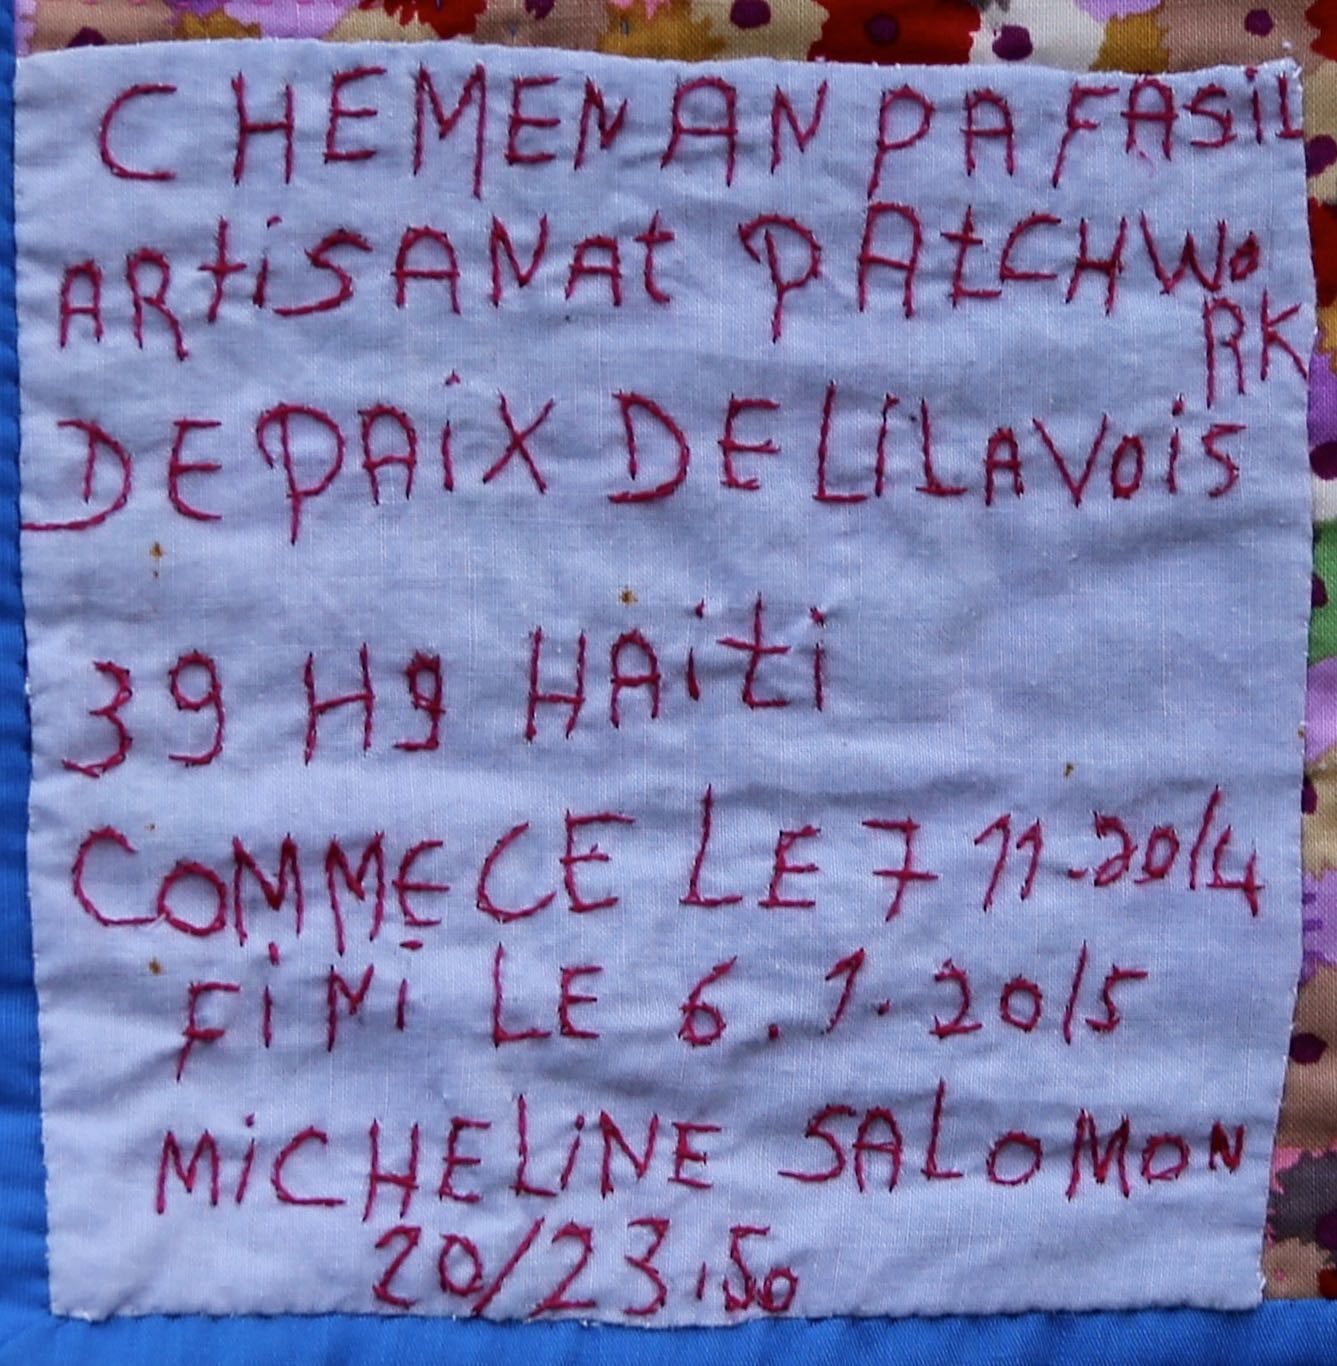 CHEMEN AN PA FASiL
ARtiSANAt PAtCHWo
RK
DE PAiX DE LiLAVOiS
39 H9 HAiti
COMMECE LE 7 11.2014
FiNi LE 6.1.2015
MiCHELiNE SALOMON
20/23.50